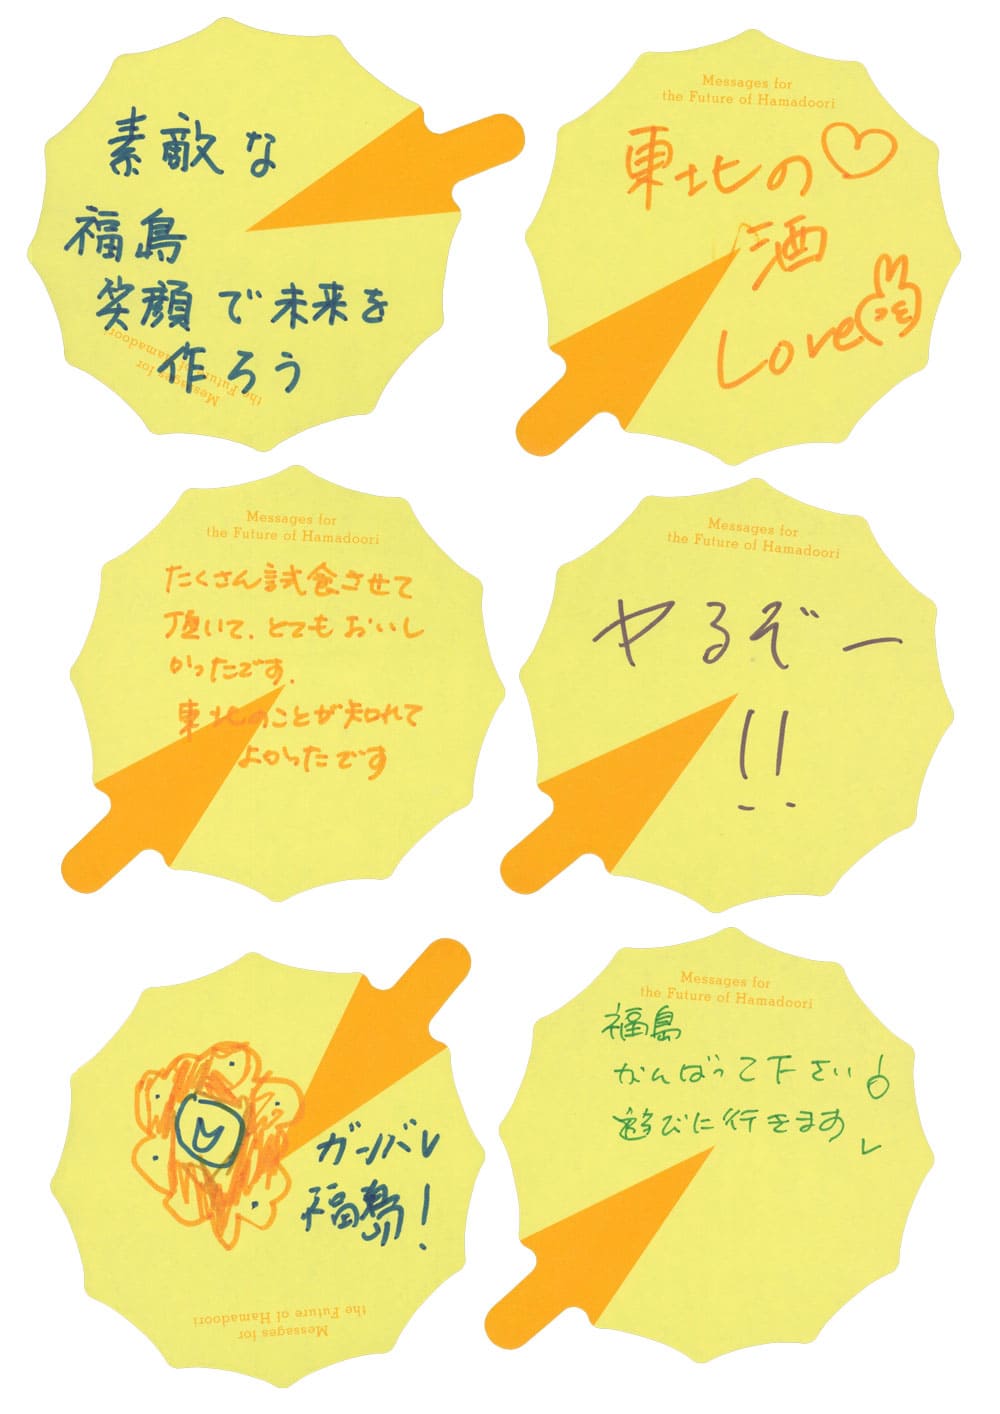 素敵な
福島
笑顔で未来を
作ろう
Messages for
the Future of Hamadoori
Messages for
the Future of Hamadoori
東北の
酒
Love
Messages for
the Future of Hamadoori
たくさん試食させて
頂いて、とてもおいし
かったです。
東北のことが知れて
よかったです
Messages for
the Future of Hamadoori
ヤるぞー
!!
ガンバレ
福島!
Messages for
the Future of Hamadoori
Messages for
the Future of Hamadoori
福島
がんばって下さい!
遊びに行きます